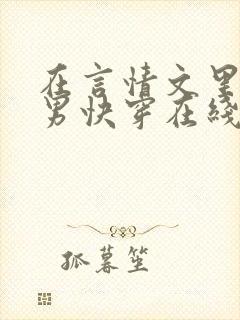 在言情文里
男快穿在线
孤暮笙